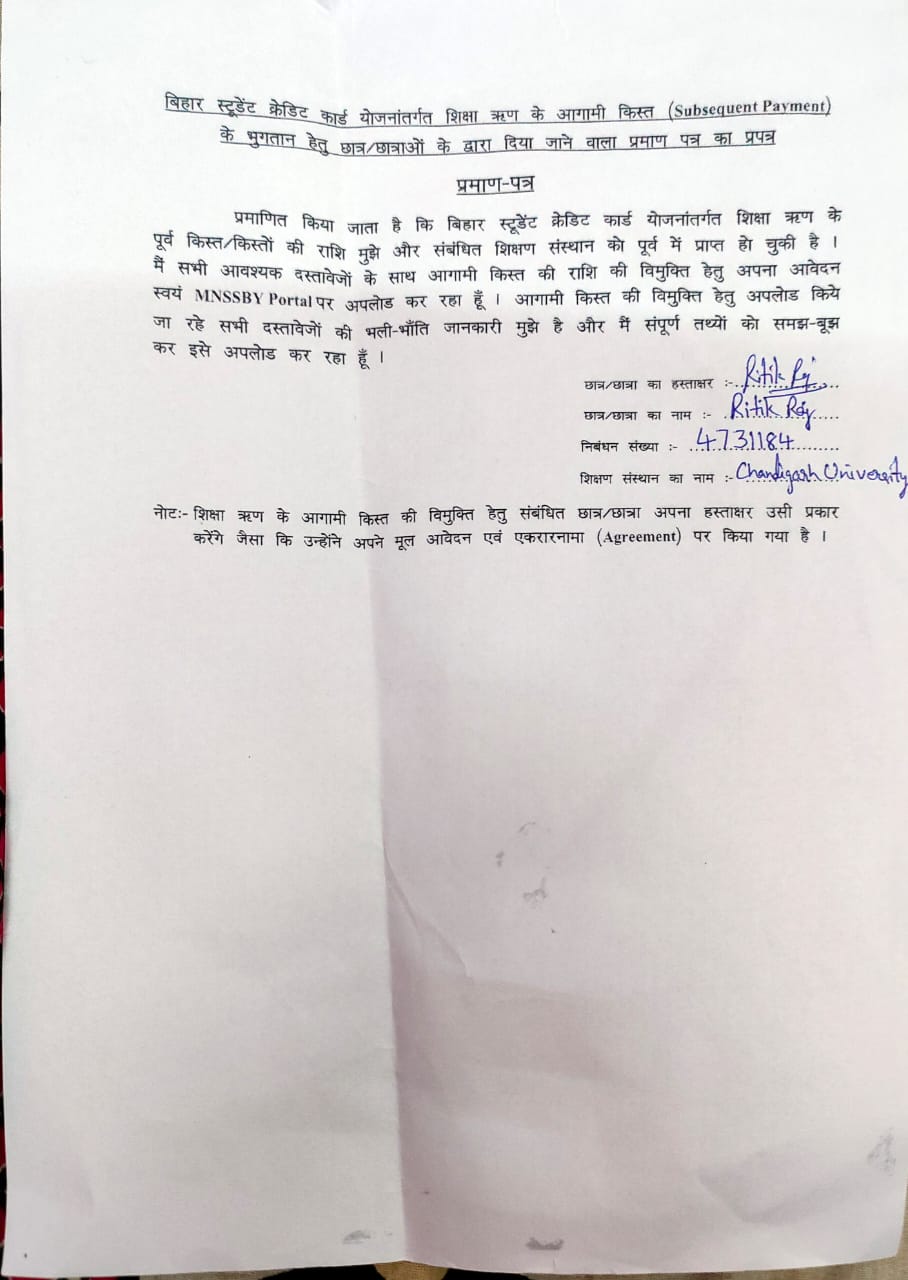 बिहार स्टूडेंट क्रेडिट कार्ड योजनांतर्गत शिक्षा ऋण के आगामी किस्त (Subsequent Payment)
के भुगतान हेतु छात्र/छात्राओं के द्वारा दिया जाने वाला प्रमाण पत्र का प्रपत्र
प्रमाण-पत्र
प्रमाणित किया जाता है कि बिहार स्टूडेंट क्रेडिट कार्ड योजनांतर्गत शिक्षा ऋण के
पूर्व किस्त/किस्तों की राशि मुझे और संबंधित शिक्षण संस्थान को पूर्व में प्राप्त हो चुकी है ।
मैं सभी आवश्यक दस्तावेजों के साथ आगामी किस्त की राशि की विमुक्ति हेतु अपना आवेदन
स्वयं MNSSBY Portal पर अपलोड कर रहा हूँ । आगामी किस्त की विमुक्ति हेतु अपलोड किये
जा रहे सभी दस्तावेजों की भली-भाँति जानकारी मुझे है और मैं संपूर्ण तथ्यों को समझ-बूझ
कर इसे अपलोड कर रहा हूँ ।
छात्र/छात्रा का हस्ताक्षर :- Ritik Raj
छात्र/छात्रा का नाम :- Ritik Raj
निबंधन संख्या :- 4731184
शिक्षण संस्थान का नाम :- Chandigarh University
नोटः- शिक्षा ऋण के आगामी किस्त की विमुक्ति हेतु संबंधित छात्र/छात्रा अपना हस्ताक्षर उसी प्रकार
करेंगे जैसा कि उन्होंने अपने मूल आवेदन एवं एकरारनामा (Agreement) पर किया गया है ।